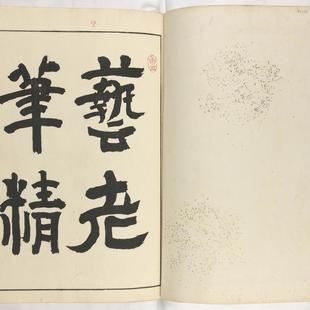 藝老
筆精